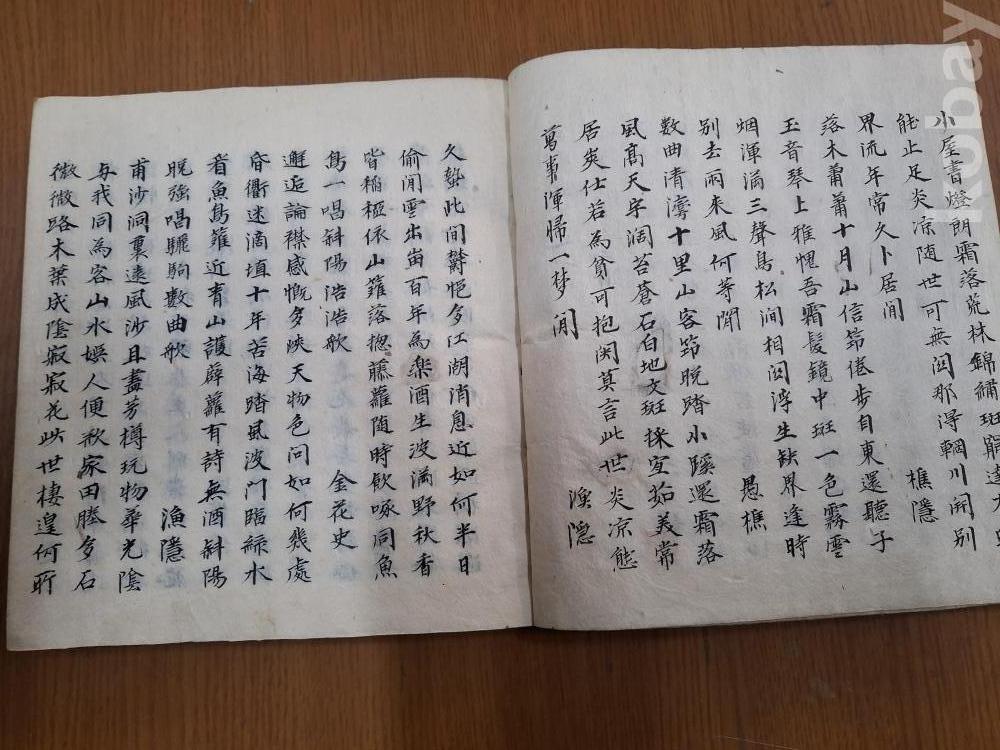 小屋書燈朗霜落荒林錦繡斑窮達
能止足炎凉随世可無関那得輞川開別
界流年常久卜居间 樵隱
落木蕭蕭十月山信笻倦步自東還聽子
玉音琴上雅愧吾霜髮鏡中斑一色霧雪
烟渾滿三聲鳥松洞相関浮生缺界逢時
別去雨来風何等閒 愚樵
數曲清灣十里山客笻晚踏小蹊還霜落
風高天宇濶苔蒼石白地文斑採宜拾義常
居爽仕若為貧可抱関莫言此世炎凉態
萬事渾歸一梦间 漁隱
久蟄此间欝悒多江湖消息近如何半日
偷閒雲出宙百年為楽酒生波滿野秋香
皆稲秬依山籬落揔藤蘿随時飲啄同魚
鳥一唱斜陽浩浩歌 金花史
邂逅論襟感慨多映天物色問如何幾處
昏衢迷滴埴十年苦海踏風波門臨綠水
看魚鳥籬近青山護薜蘿有詩無酒斜陽
晚強唱驪駒數曲歌 漁隱
甫沙洞裏遠風沙且盡芳樽玩物華光陰
与我同為客山水娛人便敀家田塍多石
微微路木葉成陰寂寂花此世棲遑何所
kobay